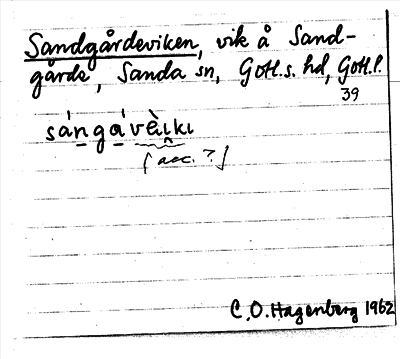 Sandgårdeviken, vik å Sand-
gårde, Sanda sn, Gotl.s. hd, Gotl.l.
39
sángávèıkı
[acc. ?]
C.O. Hagenberg 1962